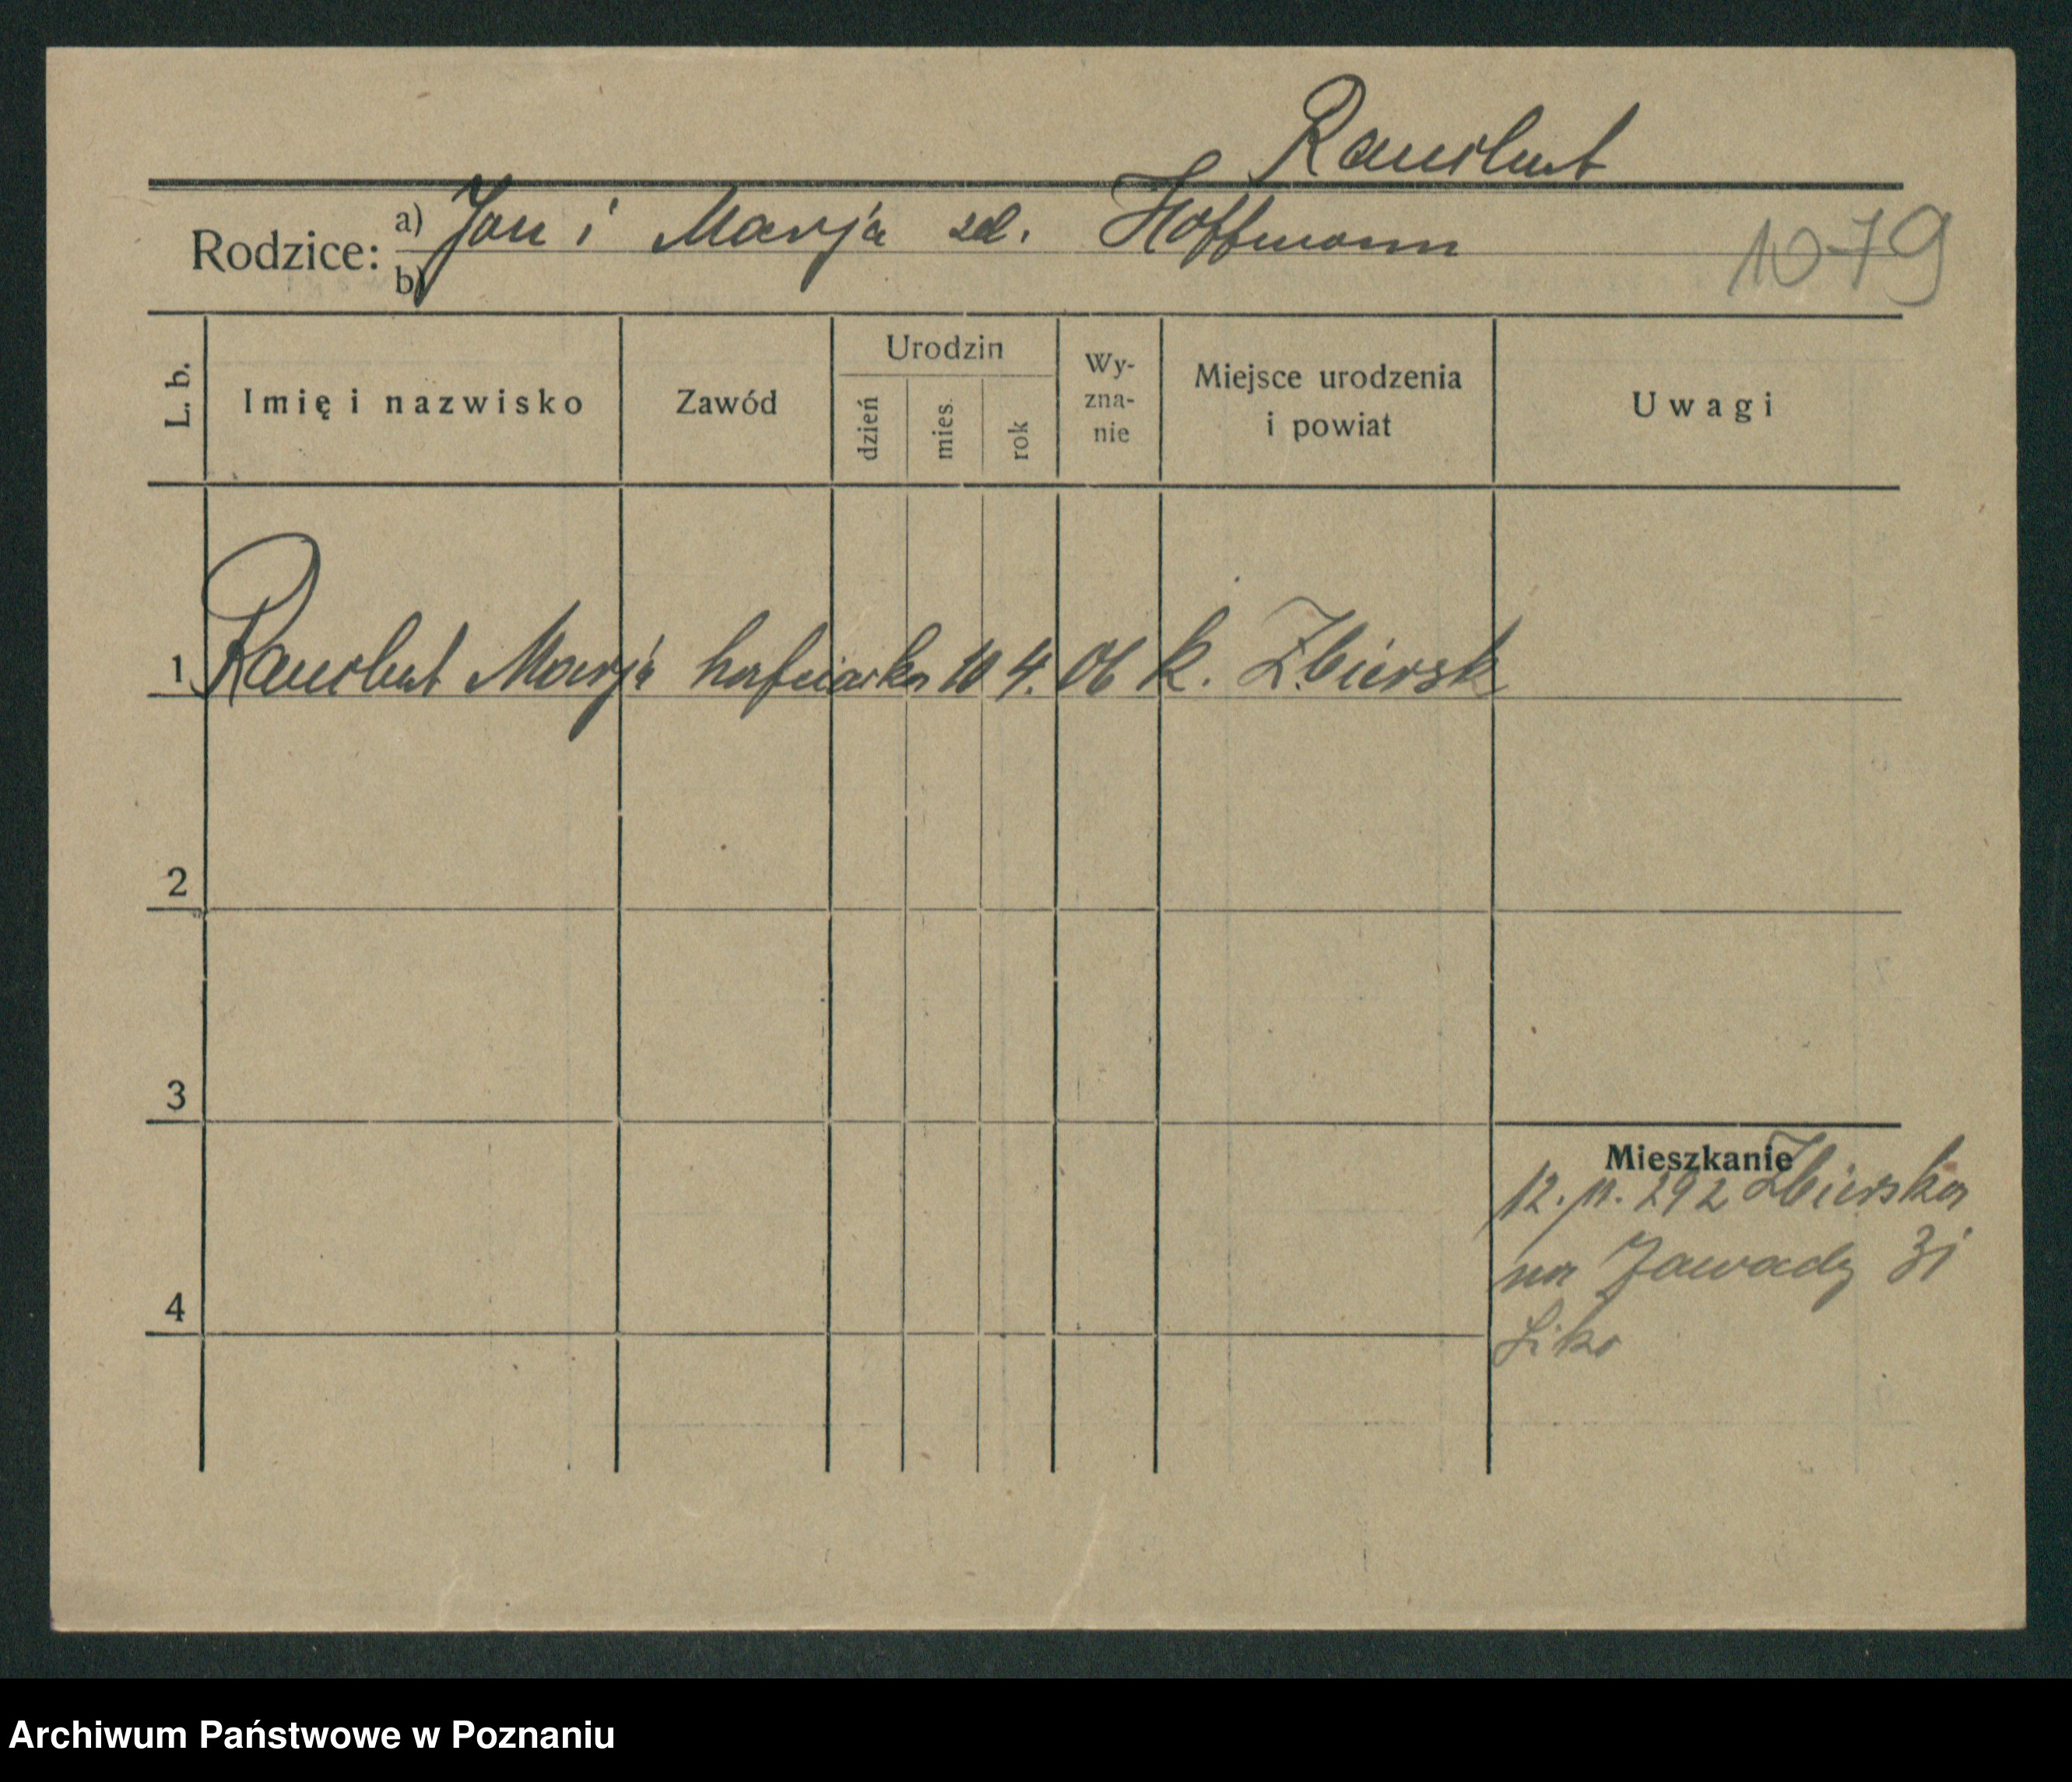 Raushut
Rodzice: a) Jan i Marja zd. Hoffmann
b)
1079
L. b.
Imię i nazwisko
Zawód
Urodzin
dzień
mies.
rok
Wy-
zna-
nie
Miejsce urodzenia
i powiat
Uwagi
1 Marja hafciarka 10 4. 06 k. Zbiersk
2
3
4
Mieszkanie
Zbierska
na Zawady 31
Archiwum Państwowe w Poznaniu